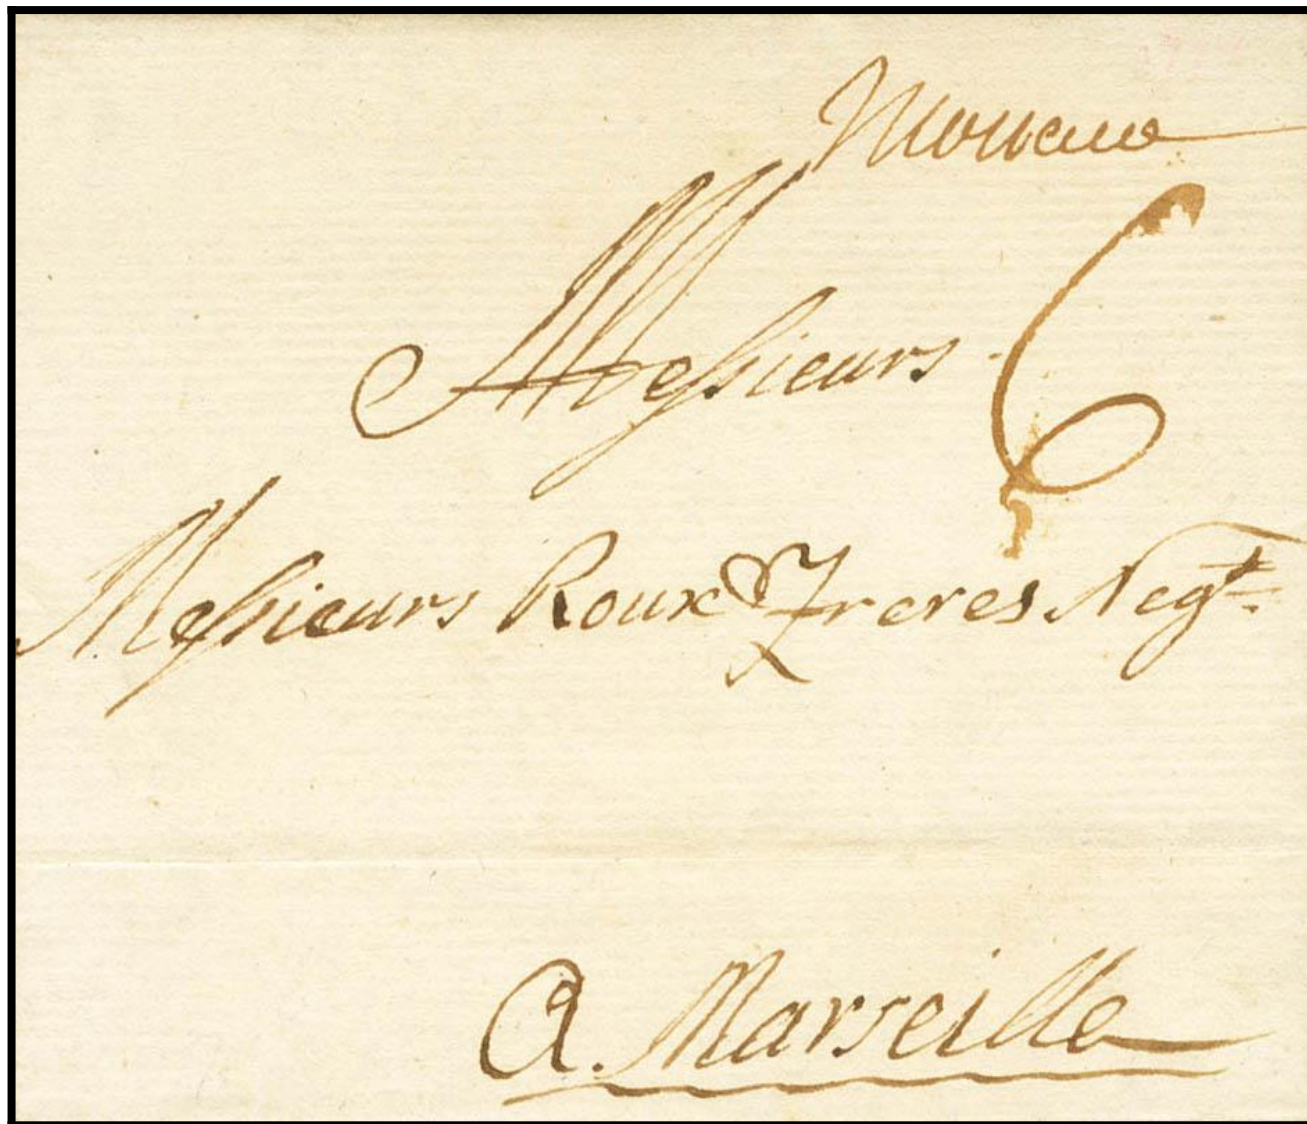 Messieurs 6
Messieurs Roux & Freres Negt.
A. Marseille